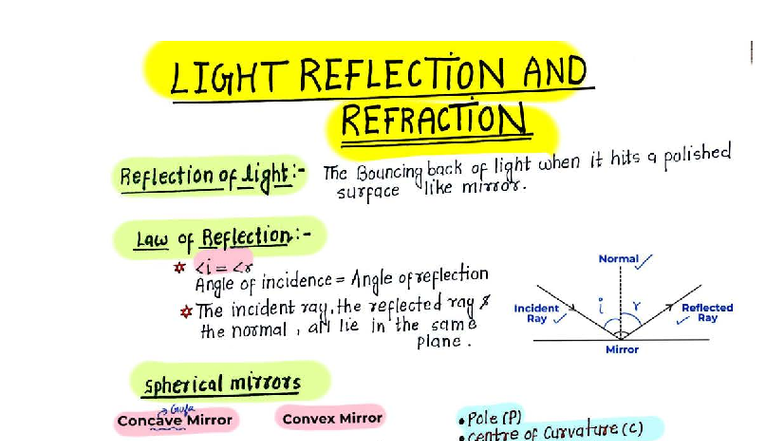 LIGHT REFLECTION AND
REFRACTION
Reflection of light:- The Bouncing back of light when it hits a polished
surface like mirror.
Law of Reflection:-
<i = <r
Angle of incidence = Angle of reflection
The incident ray, the reflected ray &
the normal, all lie in the same
plane.
Normal
i r
Incident
Ray
Reflected
Ray
Mirror
Spherical mirrors
Gufa
Concave Mirror
Convex Mirror
• Pole (P)
• centre of curvature (C)